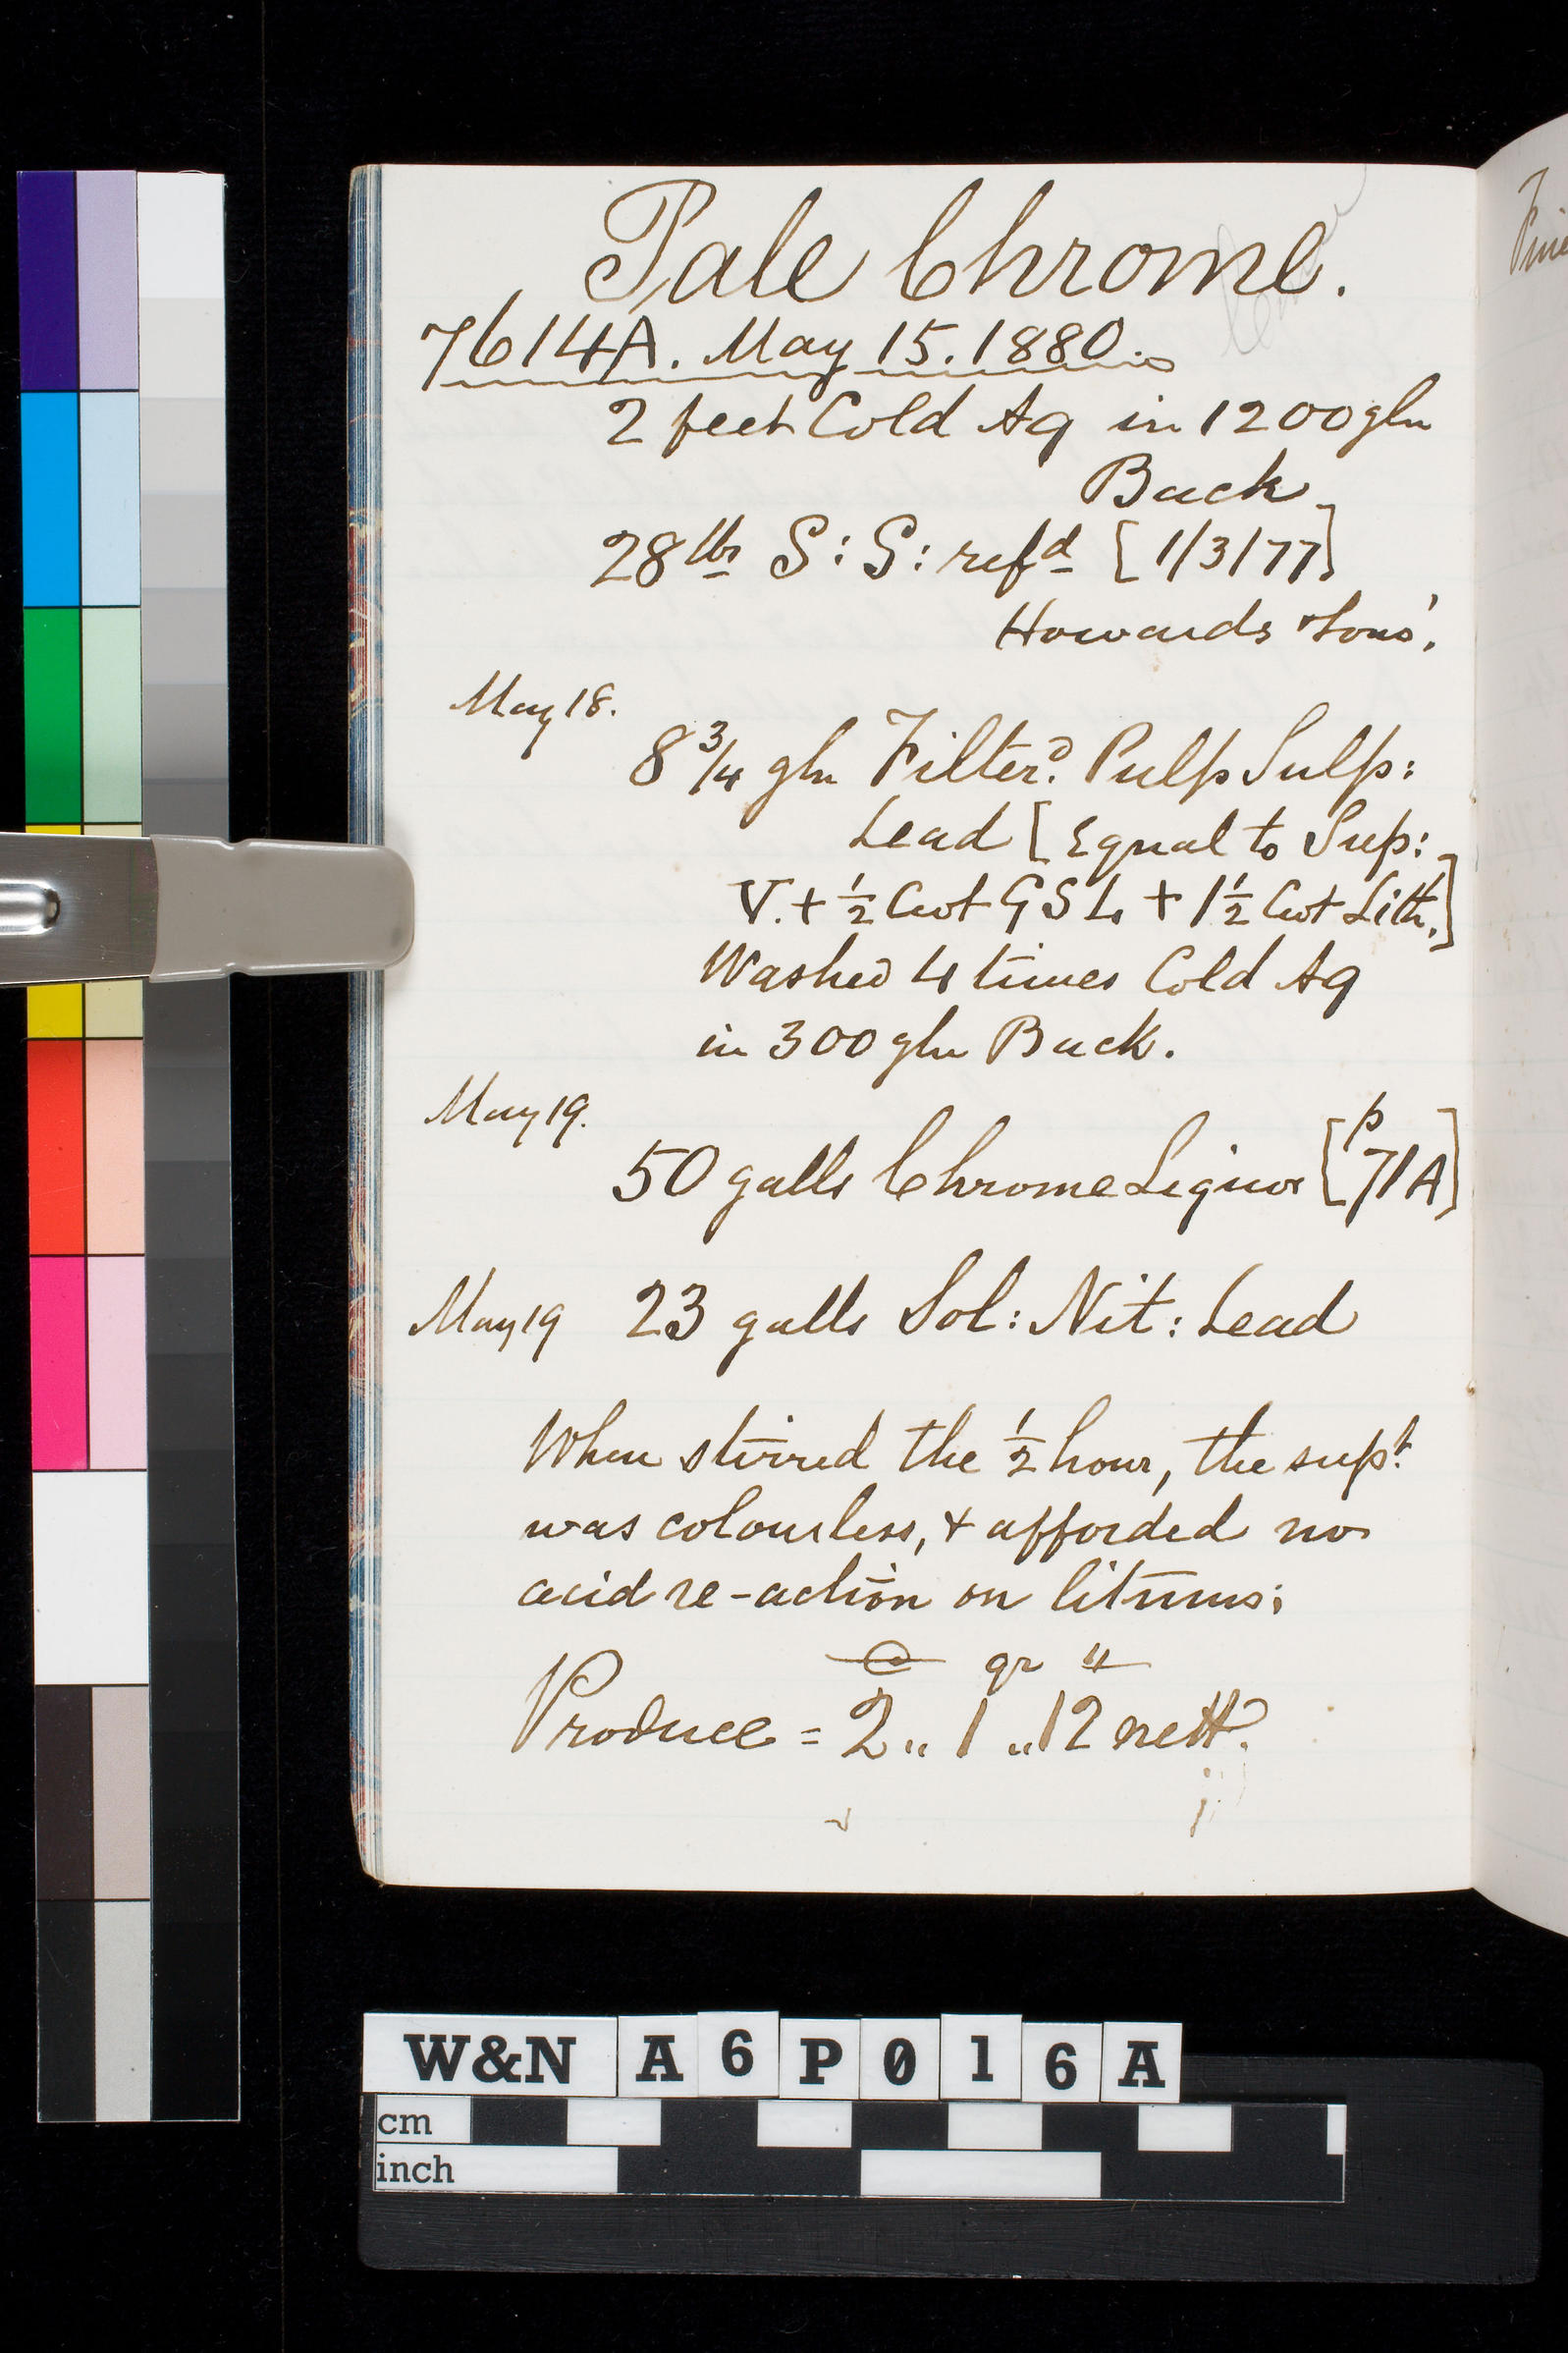 Pale Chrome.
7614A. May 15. 1880.
2 feet Cold Aq in 1200 gln
Back
28 lbs S: S: refd [1/3/77]
Howards & Sons'.
May 18.
8 3/4 gln Filterd. Pulp Sulp:
Lead [Equal to Sup:
V. + 1/2 Cwt G S L + 1 1/2 Cwt Lith.]
Washed 4 times Cold Aq
in 300 gln Back.
May 19.
50 galls Chrome Liquor [p 71A]
May 19 23 galls Sol: Nit: Lead
When stirred the 1/2 hour, the supt.
was colourless, & afforded no
acid re-action on litmus;
C qr "
Produce = 2 " 1 " 12 nett.
W&N A6P016A
cm
inch